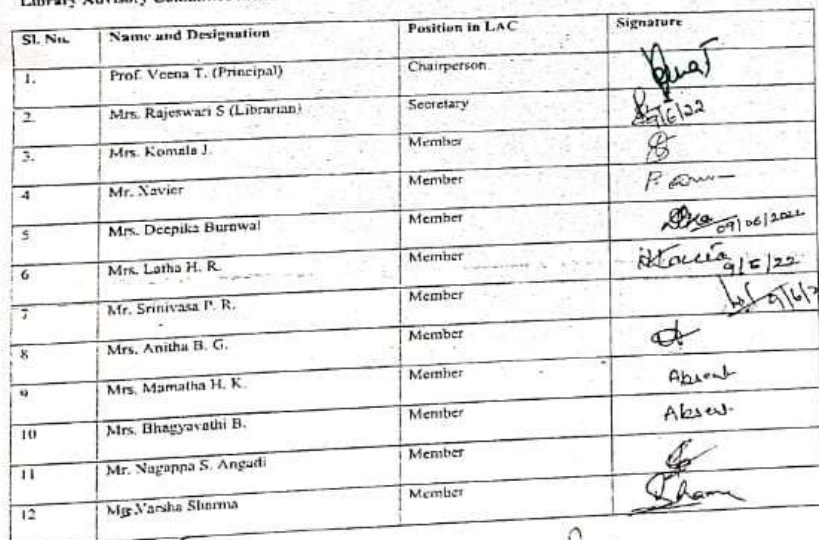 Library Advisory
Sl. No. Name and Designation Position in LAC Signature
1. Prof. Veena T. (Principal) Chairperson
2. Mrs. Rajeswari S (Librarian) Secretary 9/6/22
3. Mrs. Komala J. Member
4 Mr. Xavier Member
5 Mrs. Deepika Burnwal Member 09/06/2022
6 Mrs. Latha H. R. Member 9/6/22
7 Mr. Srinivasa P. R. Member 9/6/2
8 Mrs. Anitha B. G. Member
9 Mrs. Mamatha H. K. Member Absent
10 Mrs. Bhagyavathi B. Member Absent
11 Mr. Nagappa S. Angadi Member
12 Varsha Sharma Member